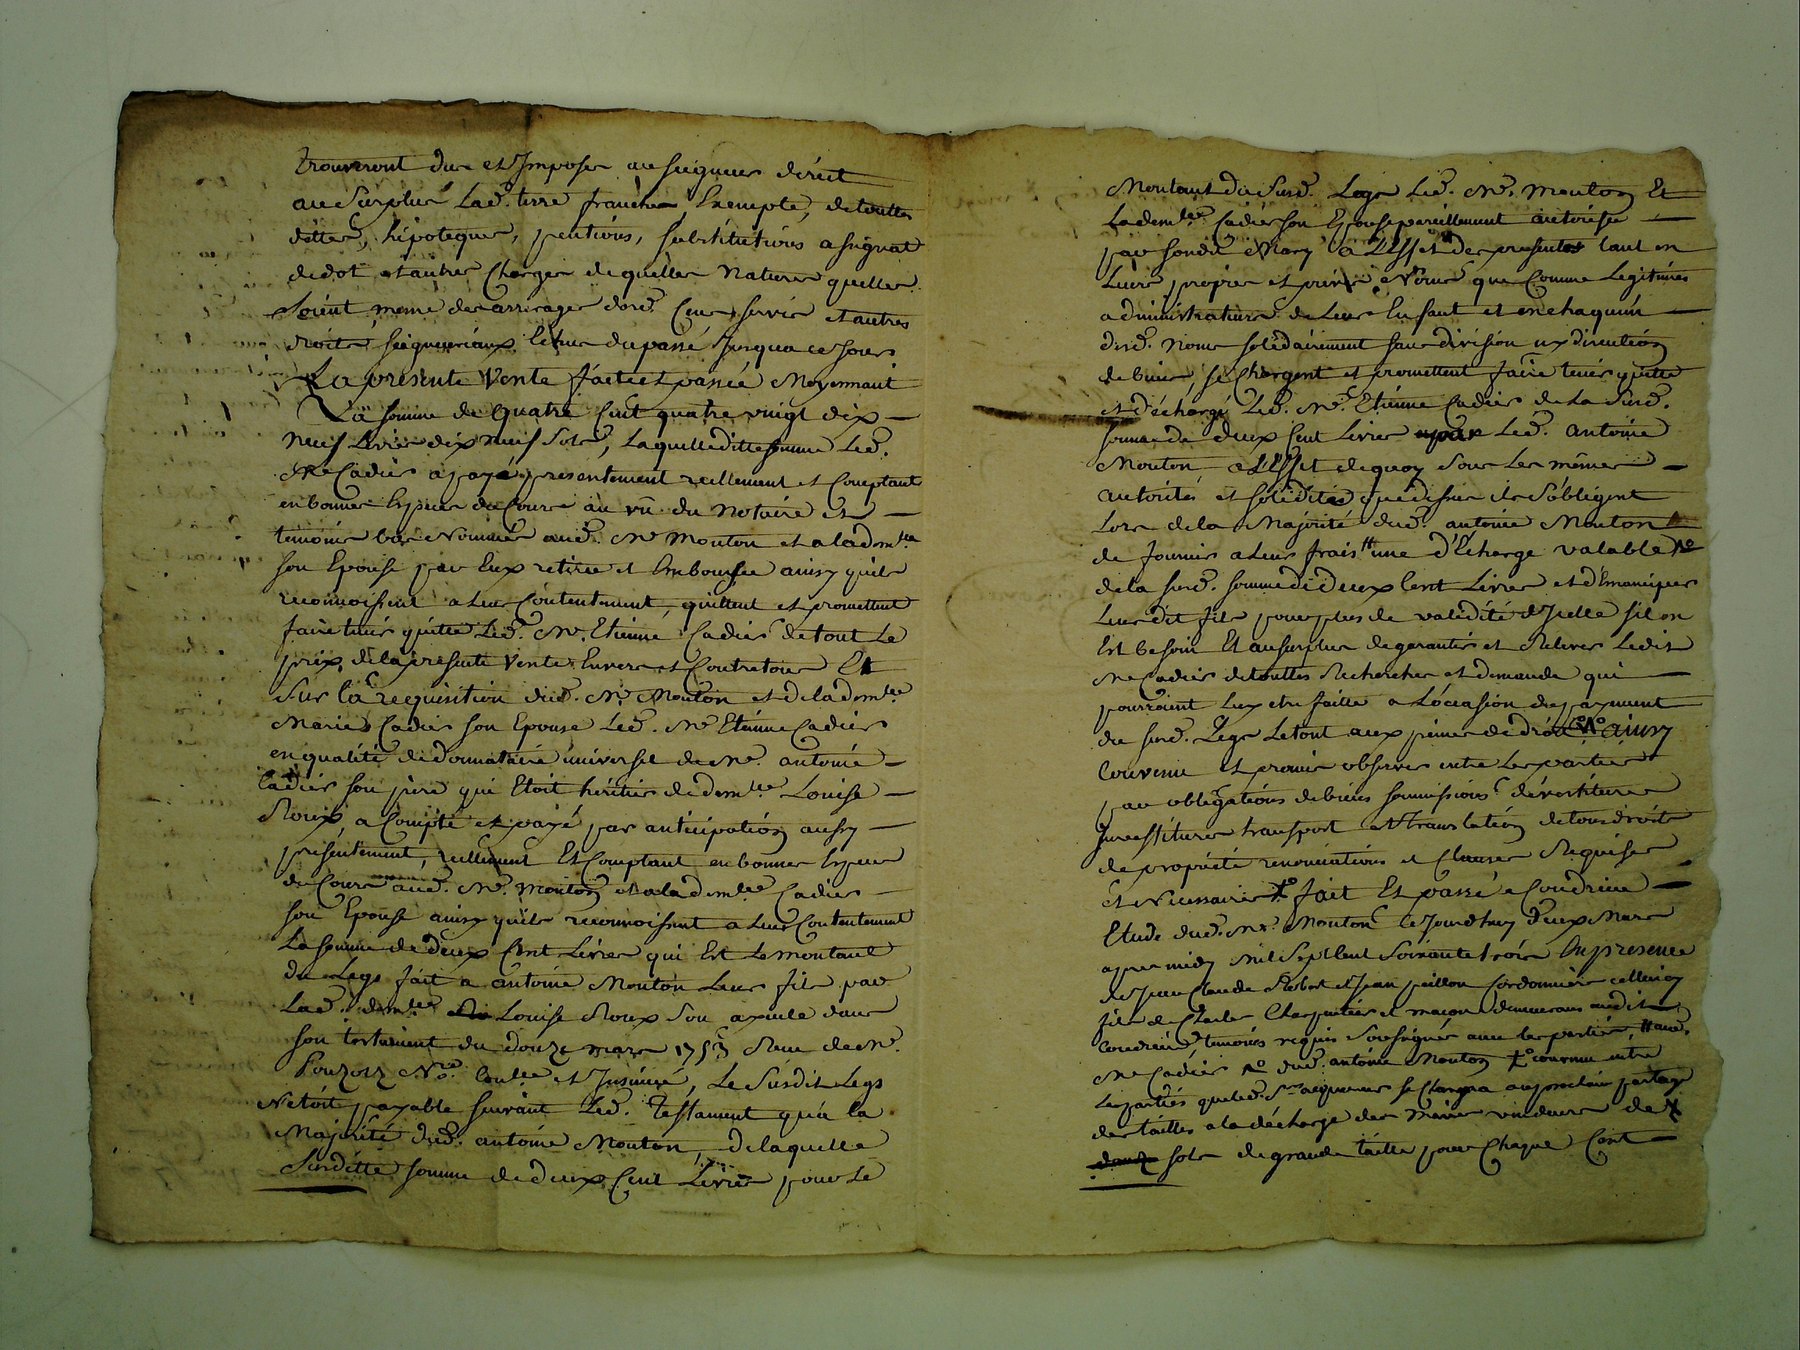 trouveront dus et Imposes au seigneur direct
au Surplus Lad.e terre franche Exempte, de touttes
dettes, hipoteques, pentions, substitutions asignat
de dot et autres Charges de quelles Natures quelles
Soient meme des arrerages desd. Cens servis et autres
droits seigneuriaux Echus du passé Jusqua ce Jour
La presente Vente faitte et passée Moyennant
La somme de quatre Cent quatre vingt dix
neuf Livres dix neuf Sols, Laquelle ditte somme Led.
Me Cadier a payé presentement reellement et Comptant
en bonnes Espices de Cours au vû du Notaire et
temoins bas Nommés aud. Me Mouton et a lad dem.lle
son Epouse par Eux retirée et Emboursée ainsy quils
reconnoissent a Leur Contentement, quittent et promettent
faire tenir quitte Led. Me. Etienne Cadier de tout Le
prix de la presente Vente Envers et Contre tous Et
Sur la requisition dud. Me. Mouton et de la dem.lle
Marie Cadier son Epouse Led. Me Etienne Cadier
en qualité de donnataire universel de Me. antoine
Cadier son pere qui Etoit héritier de dem.lle Louise
Roux, a Compté et payé par anticipation aussy
presentement, reellement Et Comptant en bonnes Espices
de Cours aud. Me. Mouton et a la dem.lle Cadier
son Epouse ainsy quils reconnoissent a Leur Contentement
La somme de deux Cent Livres qui Est Le montant
du Legs fait a antoine Mouton Leur fils par
Lad. dem.lle Louise Roux Son ayeule dans
son testament du douze mars 1753 Reçu de Me.
Pouzolz N.re et Insinué, Le Susdit Legs
N'etoit payable suivant Led. Testament qu'a la
Majorité dud. antoine Mouton, de laquelle
Susditte somme de deux Cent Livres pour Le
Montant du Susd. Legs Led. Me. Mouton Et
La dem.lle Cadier son Epouse pareillement autorisée
par sondit Mary a L'effet des presentes tant en
Leurs propres et privés Noms que Comme Legitimes
administrateurs de Leur Enfant et en chaqu'un
desd. Noms solidairement sans division ny
de biens, se Chargent et promettent faire tenir quitte
et déchargé Led. Me. Etienne Cadier de La Susd.
somme de deux Cent Livres Led. antoine
Mouton a L'effet de quoy sous Les mêmes
autorités et solidités que dessus ils s'obligent
Lors de la Majorité dud. antoine Mouton
de fournir a Leurs frais une d'Echarge valable
de la susd. somme de deux Cent Livres et d'Emanciper
Leur dit fils pour plus de validité d'Icelle sil en
Est besoin Et au surplus de garantir et Relever Ledit
Me Cadier de touttes Recherches et demande qui
pourroient Luy etre faitte a L'occasion du payement
du susd. Legs Le tout aux peines de droit ainsy
Convenu et promis observer entre Les parties
par obligations de biens soumissions dévestitures
Investitures transport et translation de tous droits
de propriété renonciations et Clauses Requises
et Necessaires fait Et passé a Condrieu
Etude dud. Me. Mouton Ce Jourd'huy deux Mars
apres midy Mil Sept Cent Soixante trois En presence
de Jean Claude Robert et Jean peillon Cordonnier
fils de Charles Charpentier et maçon demeurans audit
Condrieu temoins requis Soussignés avec Les parties,
Me Cadier dud. antoine Mouton convenu entre
Les parties que led. Sr acquereur se Chargera au prochain partage
des tailles a la décharge des Mêmes vendeurs de
sols de grande taille pour Chaque Cent